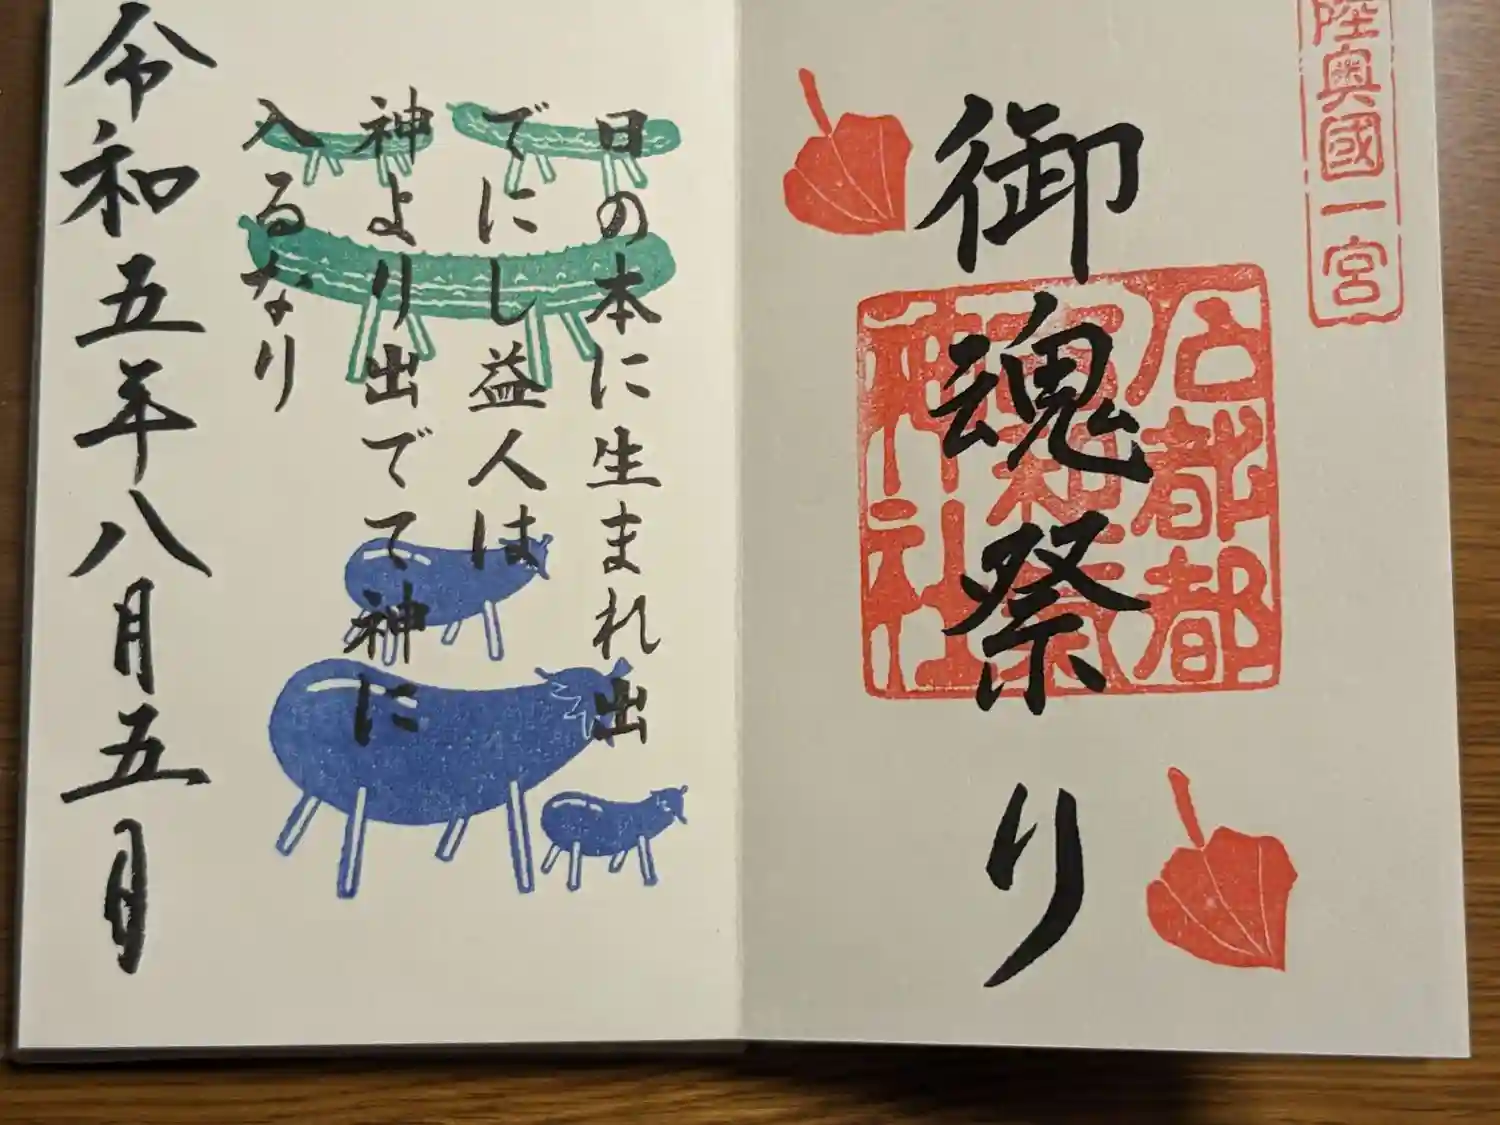 陸奥國一宮
御魂祭り
石都都古和氣神社
日の本に生まれ出
でにし益人は
神より出でて神に
入るなり
令和五年八月五日